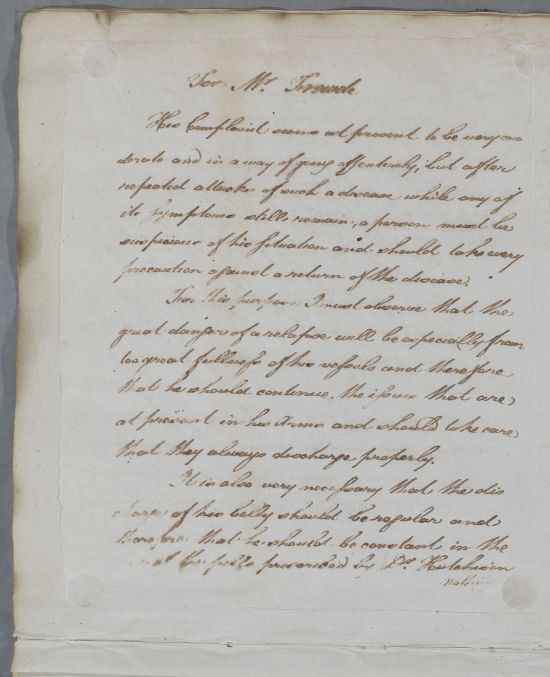 For Mr. Froude
His Complaint seems at present to be very mo
derate and in a way of going off entirely, but after
repeated attacks of such a disease while any of
its Symptoms still remain, a person must be
suspicious of his situation and should take every
precaution against a return of the disease.
For this purpose I must observe that the
great danger of a relapse will be especially from
too great fullness of his vessels and therefore
that he should continue the issues that are
at present in his Arms and should take care
that they always discharge properly.
It is also very necessary that the dis
charge of his belly should be regular and
therefore that he should be constant in the
of the pills prescribed by Dr. Hutcheson
nothing